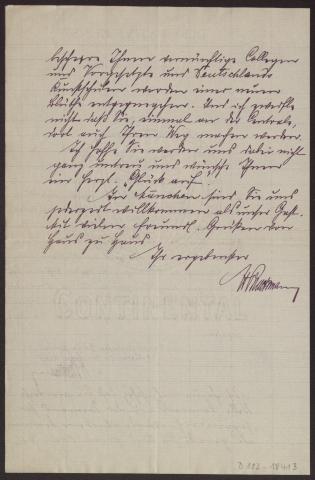 bescheere Ihnen vernünftige Collegen
und Vorgesetzte und Deutschlands
Kunstschulen werden einer neuen
Blüthe entgegengehen. Und ich zweifle
nicht daß Sie, einmal an der Centrale,
dort auch Ihren Weg machen werden.
Ich hoffe Sie werden uns dabei nicht
ganz untreu und wünsche Ihnen
ein herzl. "Glück auf".
In München sind Sie uns
jederzeit willkommen als unser Gast.
Mit vielen freundl. Grüßen von
Haus zu Haus
Ihr ergebenster
D 182-18413